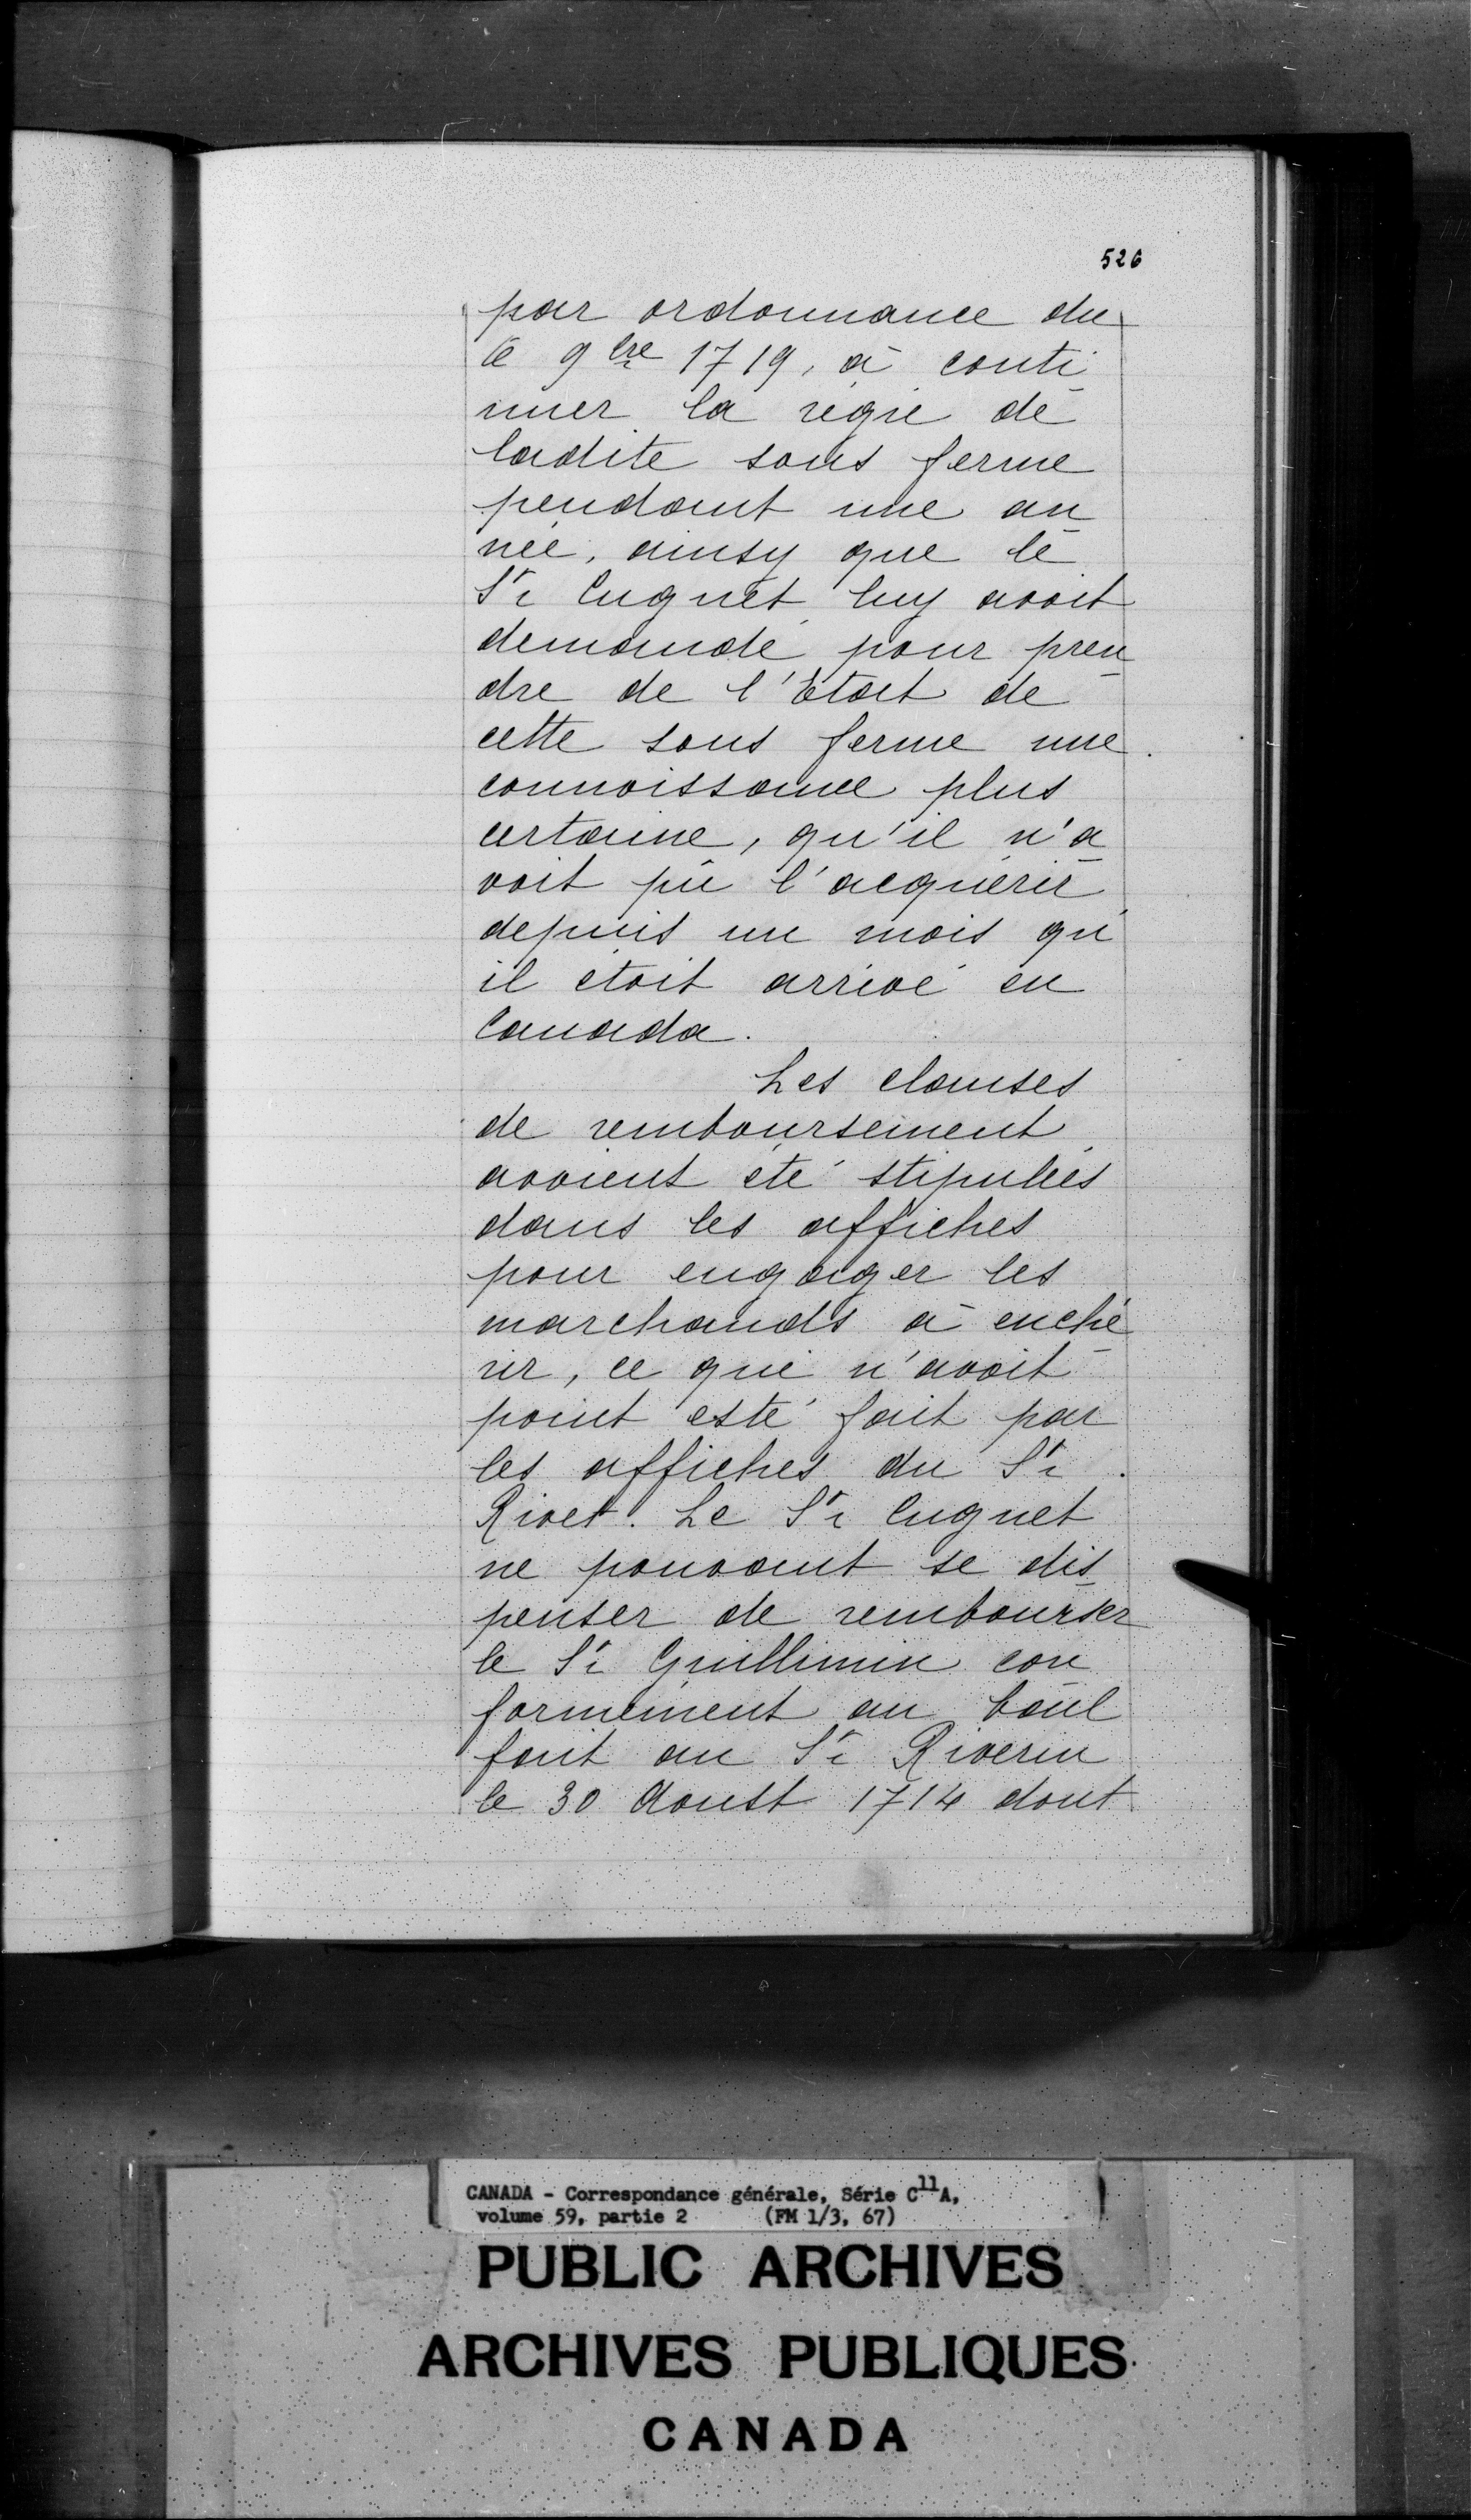 526
par ordonnance du
6 9bre 1719, à conti
nuer la régie de
ladite sous ferme
pendant une an
née, ainsy que le
Sr Cugnet luy avoit
demandé pour pren
dre de l'Etat de
cette sous ferme une
connoissance plus
certaine, qu'il n'a
voit pû l'acquérir
depuis un mois qu'
il étoit arrivé en
Canada.
Les clauses
de remboursement
avoient été stipulées
dans les affiches
pour engager les
marchands à enché
rir, ce qui n'avoit
point esté fait par
les affiches du Sr
Rivet. Le Sr Cugnet
ne pouvant se dis
penser de rembourser
le Sr Guillimin con
formément au bail
fait au Sr Riverin
le 30 Aoust 1714 dont
CANADA - Correspondance générale, Série C11A,
volume 59, partie 2 (FM 1/3, 67)
PUBLIC ARCHIVES
ARCHIVES PUBLIQUES
CANADA